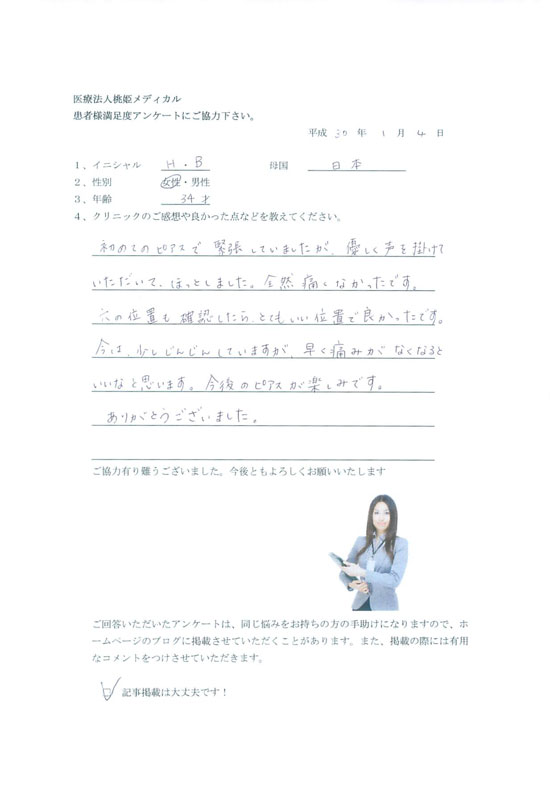 医療法人桃姫メディカル
患者様満足度アンケートにご協力下さい。
平成 30 年 1 月 4 日
1、イニシャル H・B 母国 日本
2、性別 女性・男性
3、年齢 34才
4、クリニックのご感想や良かった点などを教えてください。
初めてのピアスで緊張していましたが、優しく声を掛けて
いただいて、ほっとしました。全然痛くなかったです。
穴の位置も確認したら、とてもいい位置で良かったです。
今は、少しじんじんしていますが、早く痛みがなくなると
いいなと思います。今後のピアスが楽しみです。
ありがとうございました。
ご協力有り難うございました。今後ともよろしくお願いいたします
ご回答いただいたアンケートは、同じ悩みをお持ちの方の手助けになりますので、ホ
ームページのブログに掲載させていただくことがあります。また、掲載の際には有用
なコメントをつけさせていただきます。
記事掲載は大丈夫です！